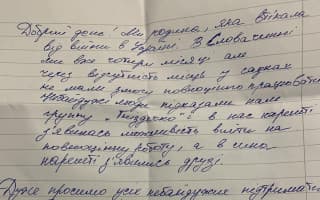 Добрий день! Ми родина, яка втікала
від війни в Україні. В Словаччині
ми вже чотири місяці але
через відсутність місць у садках
не мали змогу повноцінно працювати
Небайдужі люди підказали нам
групку "Гніздечко" і в нас нарешті
з'явилась можливість вийти на
повноцінну роботу, а в сина
нарешті з'явились друзі.
Дуже просимо усіх небайдужих підтримати